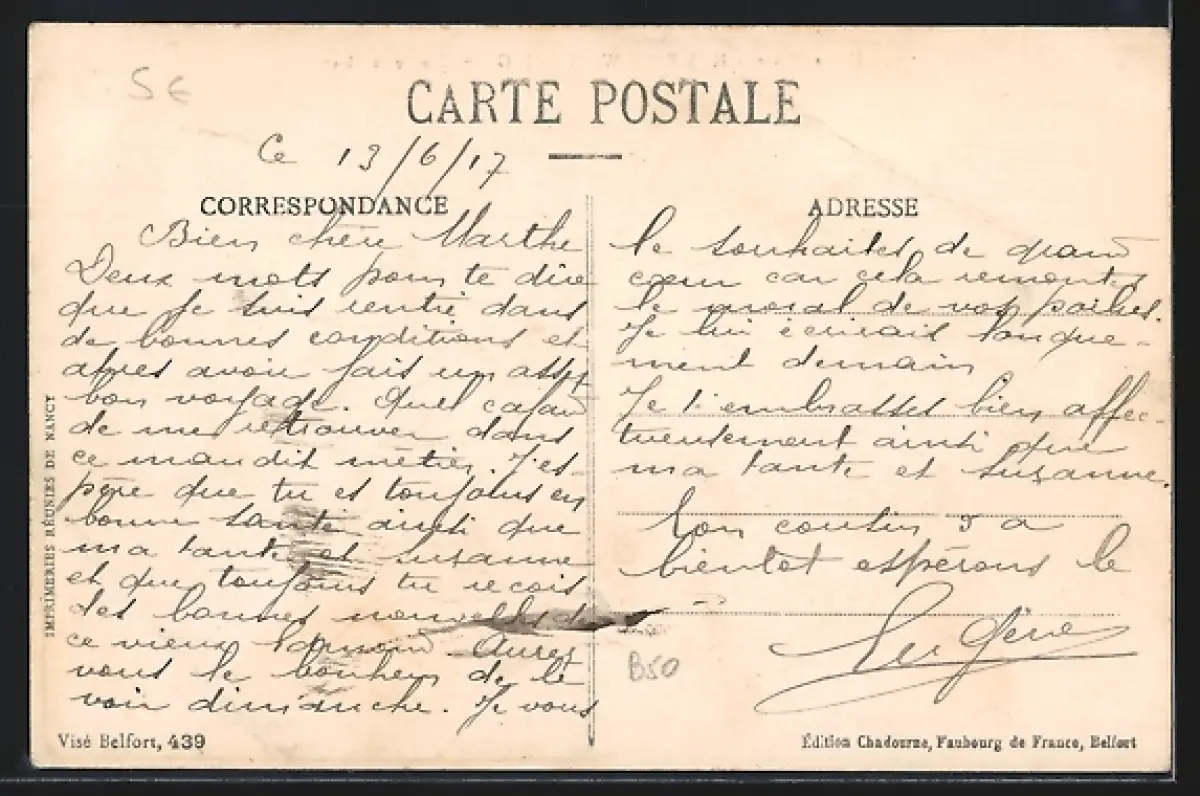 5 €
CARTE POSTALE
Ce 13/6/17
CORRESPONDANCE
Bien chère Marthe
Deux mots pour te dire
que je suis rentré dans
de bonnes conditions et
après avoir fait un assez
bon voyage. Quel cafard
de me retrouver dans
ce maudit métier. J'es-
père que tu es toujours en
bonne santé ainsi que
ma tante et suzanne
et que toujours tu reçois
des bonnes nouvelles de
ce vieux Edmond Aurez
vous le bonheur de le
voir dimanche. Je vous
ADRESSE
le souhaites de grand
cœur car cela remontes
le moral de vos poilus.
Je lui écrirais longue-
ment demain
Je t'embrasses bien affec-
tueusement ainsi que
ma tante et suzanne.
Ton cousin & a
bientot espérons le
Eugène
B50
IMPRIMERIES RÉUNIES DE NANCY
Visé Belfort, 439
Édition Chadourne, Faubourg de France, Belfort